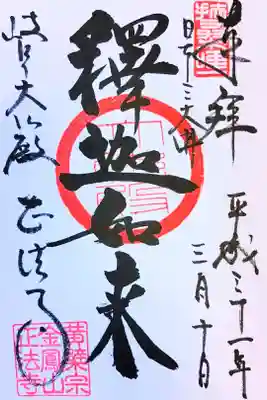 奉拝
平成三十一年
三月十日
日本三大佛
釋迦如来
岐阜大仏殿
正法寺
黄檗宗
金鳳山
正法寺